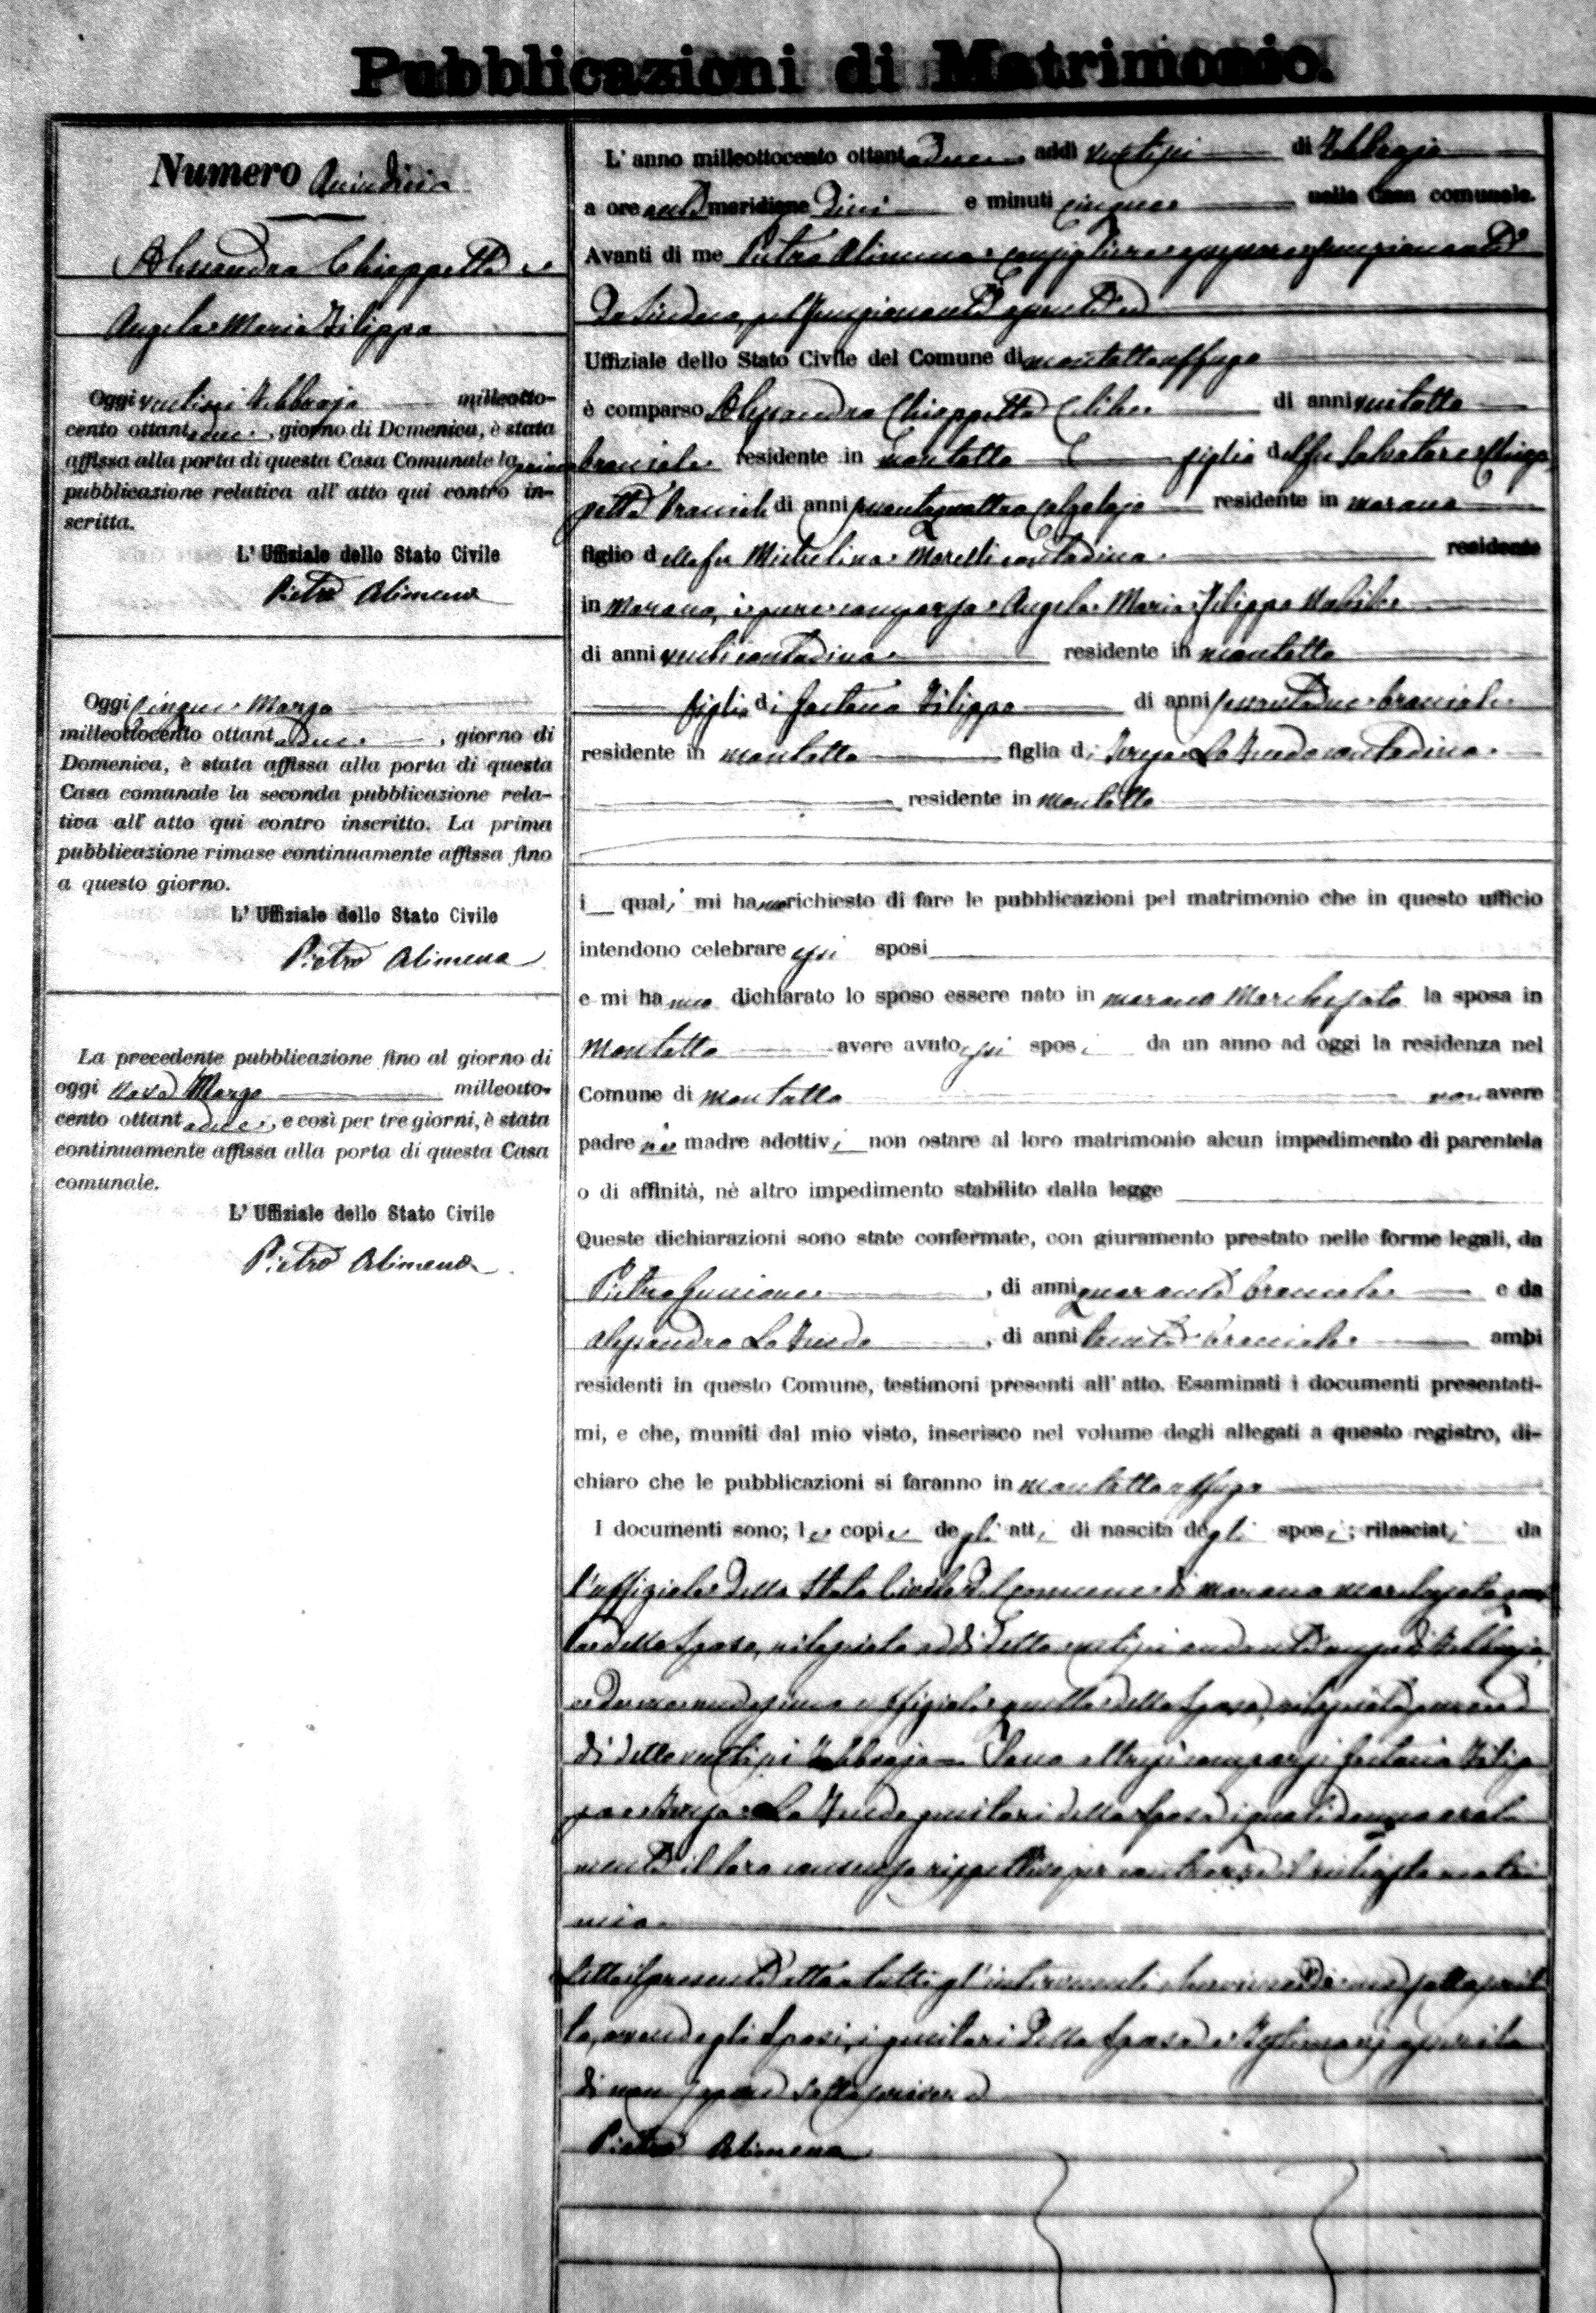 Pubblicazioni di Matrimonio.
Numero Quindici
Alessandro Chiappetta e
Angela Maria Filippo
Oggi ventisei Febbrajo milleotto-
cento ottantadue, giorno di Domenica, è stata
affissa alla porta di questa Casa Comunale la prima
pubblicazione relativa all' atto qui contro in-
scritta.
L' Uffiziale dello Stato Civile
Pietro Alimena
Oggi cinque Marzo
milleottocento ottantadue, giorno di
Domenica, è stata affissa alla porta di questa
Casa comunale la seconda pubblicazione rela-
tiva all' atto qui contro inscritto. La prima
pubblicazione rimase continuamente affissa fino
a questo giorno.
L' Uffiziale dello Stato Civile
Pietro Alimena
La precedente pubblicazione fino al giorno di
oggi nove Marzo milleotto-
cento ottantadue, e così per tre giorni, è stata
continuamente affissa alla porta di questa Casa
comunale.
L' Uffiziale dello Stato Civile
Pietro Alimena
L' anno milleottocento ottantadue addì ventisei di Febbrajo
a ore anti meridiane dieci e minuti cinque nella Casa comunale.
Avanti di me Pietro Alimena consigliere funzionante
da Sindaco,
Uffiziale dello Stato Civile del Comune di Montaltouffugo
è comparso Alessandro Chiappetta celibe di anni ventotto
bracciale residente in Montalto figlio del fu Salvatore Chiap
petta di anni calzolajo residente in Marano
figlio della fu Michelina Morelli contadina residente
in Marano, è pure comparsa Angela Maria Filippo nubile
di anni venti contadina residente in Montalto
figlia di Gaetano Filippo di anni bracciale
residente in Montalto figlia di Teresa Lo Feudo contadina
residente in Montalto
i quali mi hanno richiesto di fare le pubblicazioni pel matrimonio che in questo ufficio
intendono celebrare essi sposi
e mi hanno dichiarato lo sposo essere nato in Marano Marchesato la sposa in
Montalto avere avuto essi sposi da un anno ad oggi la residenza nel
Comune di Montalto non avere
padre nè madre adottivi non ostare al loro matrimonio alcun impedimento di parentela
o di affinità, nè altro impedimento stabilito dalla legge
Queste dichiarazioni sono state confermate, con giuramento prestato nelle forme legali, da
Pietro , di anni quaranta bracciale e da
Alessandro Lo Feudo, di anni trenta bracciale ambi
residenti in questo Comune, testimoni presenti all' atto. Esaminati i documenti presentati-
mi, e che, muniti dal mio visto, inserisco nel volume degli allegati a questo registro, di-
chiaro che le pubblicazioni si faranno in Montaltouffugo
I documenti sono; le copie degli atti di nascita degli sposi; rilasciati da
l'uffiziale dello Stato Civile del Comune di Marano Marchesato
dello sposo, rilasciata
uffiziale quella della sposa, rilasciata
di detto ventisei Febbrajo Sono altresì comparsi Gaetano Filip
po e Teresa Lo Feudo genitori della sposa i quali danno oral
mente il loro consenso rispettivo per contrarre il richiesto matri
monio
Letto il presente atto a tutti gl'intervenuti viene da me sottoscrit
to, avendo gli sposi, i genitori della sposa e testimonj asserito
di non sapere sottoscrivere
Pietro Alimena